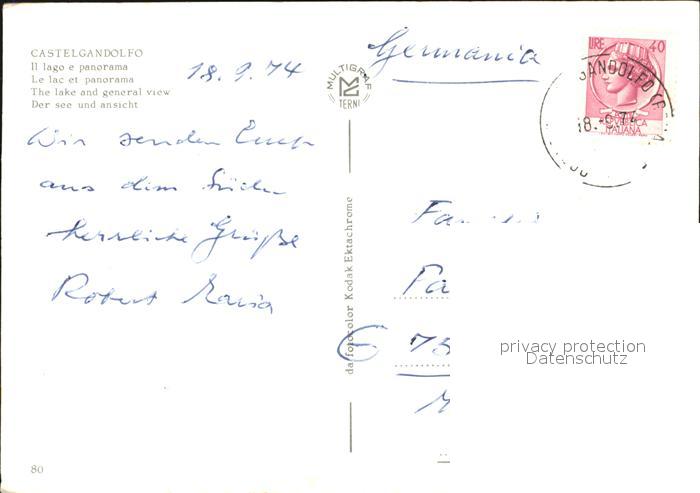 CASTELGANDOLFO
Il lago e panorama
Le lac et panorama
The lake and general view
Der see und ansicht
18.9.74
Wir senden Euch
aus dem Süden
herrliche Grüße
Robert Maria
80
MULTIGRAF
TERNI
da fotocolor Kodak Ektachrome
Germania
LIRE 40
REPUBBLICA
ITALIANA
GANDOLFO
18.-9.74
Fa
Fa
75
privacy protection
Datenschutz